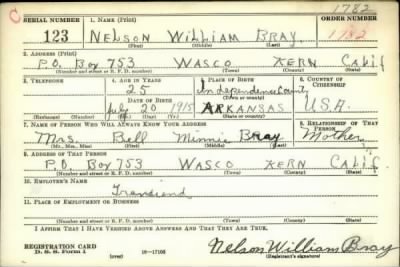 C 1782
SERIAL NUMBER 1. Name (Print) ORDER NUMBER
123 NELSON WILLIAM BRAY 1782
(First) (Middle) (Last)
2. Address (Print)
P.O. Box 753 WASCO KERN CALIF
(Number and street or R. F. D. number) (Town) (County) (State)
3. Telephone 4. Age in Years 5. Place of Birth 6. Country of Citizenship
25 Independence County
Date of Birth (Town or county)
July 20 1915 ARKANSAS U.S.A.
(Exchange) (Number) (Mo.) (Day) (Yr.) (State or country)
7. Name of Person Who Will Always Know Your Address 8. Relationship of That Person
Mrs. Bell Minnie Bray Mother
(Mr., Mrs., Miss) (First) (Middle) (Last)
9. Address of That Person
P.O. Box 753 WASCO KERN CALIF
(Number and street or R. F. D. number) (Town) (County) (State)
10. Employer's Name
11. Place of Employment or Business
(Number and street or R. F. D. number) (Town) (County) (State)
I Affirm That I Have Verified Above Answers and That They Are True.
Registration Card
D. S. S. Form 1 (over) 16—17105
Nelson William Bray
(Registrant's signature)